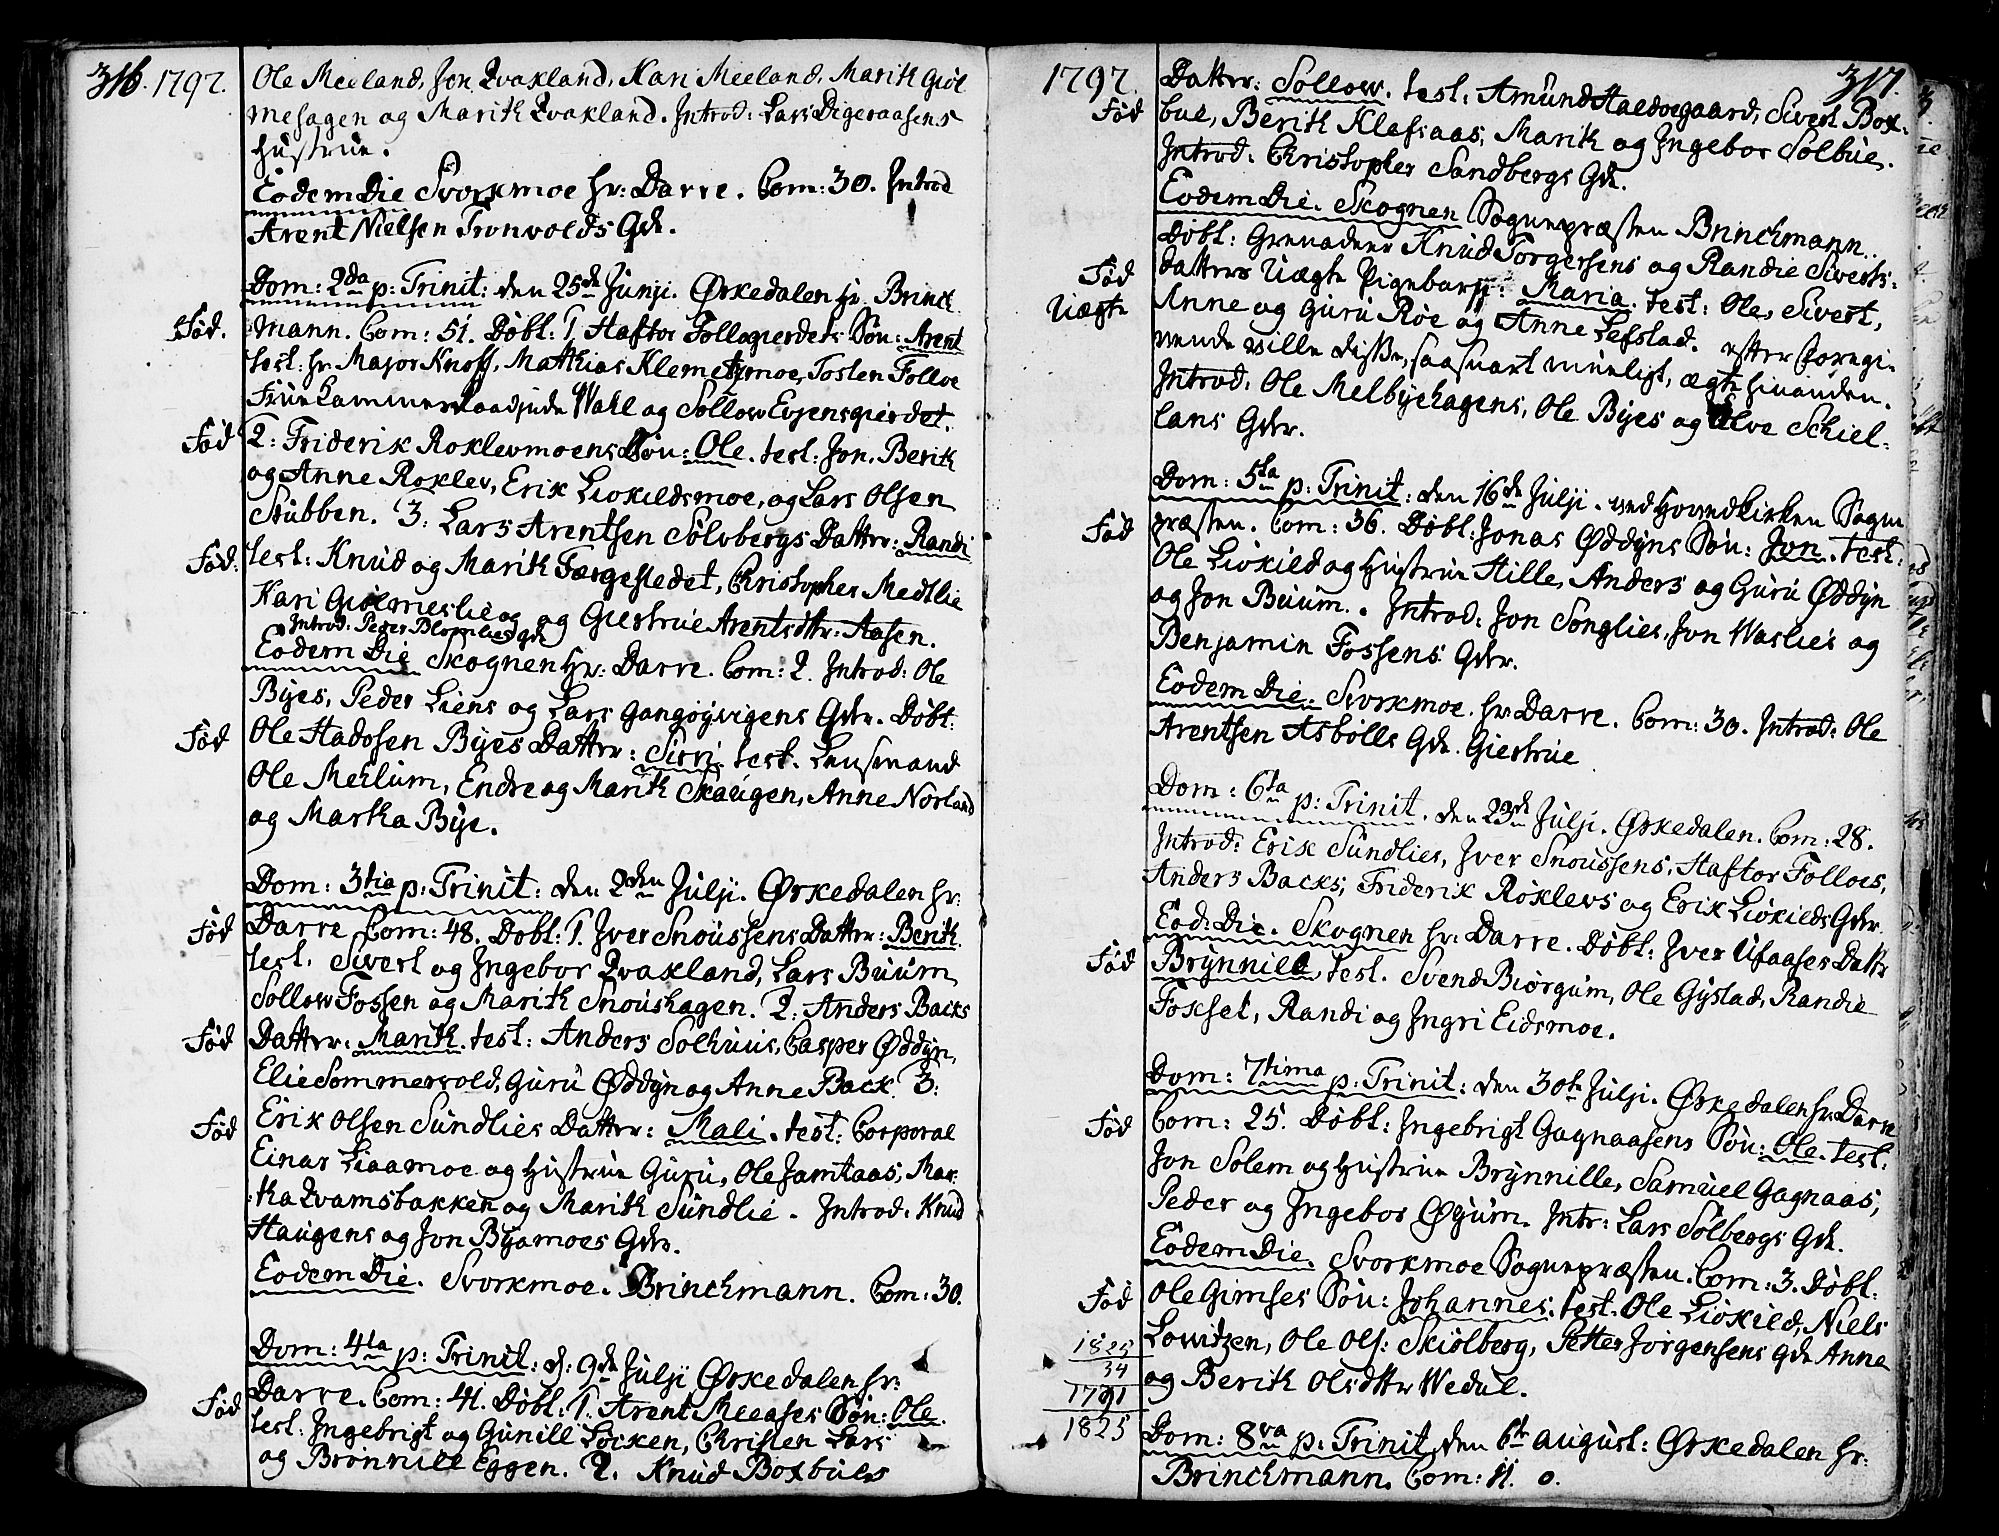 316. 1797.
Ole Meeland, Jon Qvakland, Kari Meeland, Marith Giöl
mesagen og Marith Qvakland. Introd: Lars Digeraasens
Hustrue.
Eodem Die Svorkmoe hr: Darre. Com: 30. Introd
Arent Nielsen Tronvolds Qde.
Dom: 2da p: Trinit: den 25de Junji. Ørkedalen hr. Brinch
Fød.
mann. Com: 51. Döbt: 1. Haftor Follogierdets Sön: Arent
test: hr Major Knoff, Mathias Klemetzmoe, Tosten Folloe
Frue Kammerraadinde Wahl og Sollow Evjensgierdet.
Fød
2: Friderik Roklevmoens Sön: Ole. test: Jon, Berith
og Anne Roklev, Erik Liökildsmoe, og Lars Olsen
Stubben. 3: Lars Arentsen Sölvbergs Datter: Randi
Fød.
test: Knud og Marith Færgestedet, Christopher Medtlie
Kari Giölmeslie og Giertrue Arentsdtr: Aasen.
Introd: Peder Blomlies Qde
Eodem Die Skognen Hr: Darre. Com: 2. Introd: Ole
Byes, Peder Liens og Lars Gangöyvigens Qdr. Döbt:
Fød
Ole Hadosen Byes Datter: Sirri. test. Lensmand
Ole Merlum, Endre og Marith Skaugen, Anne Norland
og Martha Bye.
Dom: 3tia p: Trinit: den 2den Julji. Ørkedalen hr:
Fød
Darre Com: 48. Döbt: 1. Jver Snoussens Datter: Berith
test. Sivert og Ingebor Qvakland, Lars Buum,
Sollow Fossen og Marith Snoushagen. 2: Anders Backs
Fød
Datter: Marith. test: Anders Solhuus, Casper Øddyn,
Elie Sommervold, Guru Øddyn og Anne Back 3:
Fød
Erik Olsen Sundlies Datter: Mali. test: Corporal
Einar Liaamoe og Hustrue Guru, Ole Jamtaas, Mar-
tha Qvamsbakken og Marith Sundlie. Introd: Knud
Haugens og Jon Byamoes Qdr.
Eodem Die. Svorkmoe. Brinchmann. Com: 30.
Dom: 4ta p: Trinit: d: 9de Julji Ørkedalen hr:
Fød
Darre. Com: 41. Döbt: 1. Arent Meeases Sön: Ole.
test: Ingebrigt og Gunill Löcken, Christen Lars
og Brönnild Eggen. 2. Knud Boxbues
1797. 317.
Datter: Sollow. test: Amund Haldorsgaard, Sivert Box-
Fød
bue, Berith Klefsaas, Marith og Ingebor Solbue.
Introd: Christopher Sandbergs Qde.
Eodem Die. Skognen Sognepræsten Brinchmann.
Döbt: Grenadeer Knud Torgersens og Randie Siverts-
Fød
Uægte
datters Uægte Pigebarn: Maria. test: Ole, Sivert,
Anne og Guru Röe og Anne Lefstad. efter foregi-
vende ville disse, saasnart mueligt, ægte hinanden.
Introd: Ole Melbyehagens, Ole Byes og Alve Schiel-
lans Qdr.
Dom: 5ta p: Trinit: den 16de Julji. ved Hovedkirken Sogne
Fød
præsten. Com: 36. Döbt: Jonas Øddyns Sön: Jon. test:
Ole Liökild og Hustrue Hille, Anders og Guru Øddyn
og Jon Buum. Introd: Jon Songlies, Jon Waslies og
Benjamin Fossens Qdr.
Eodem Die. Svorkmoe. hr: Darre. Com: 30. Introd: Ole
Arentsen Asbölls Qde. Giertrue
Dom: 6ta p: Trinit. den 23de Julji. Ørkedalen. Com: 28.
Introd: Erik Sundlies, Jver Snoussens, Haftor Folloes,
Anders Backs, Friderik Roklevs og Erik Liökilds Qdr.
Eod: Die. Skognen hr: Darre. Döbt: Jver Ufaases Datter
Fød
Brynnild, test. Svend Biörgum, Ole Gystad, Randie
Foxset, Randi og Ingri Eidsmoe.
Dom: 7tima p: Trinit: den 30te Julji. Ørkedalen hr: Darre
Fød
Com: 25. Döbt: Ingebrigt Gagnaasens Sön: Ole. test:
Jon Solem og Hustrue Brynnille, Samuel Gagnaas,
Peder og Ingebor Øyum. Intr: Lars Sölbergs Qde.
Eodem Die. Svorkmoe Sognepræsten. Com: 3. Döbt:
Fød
Ole Gimses Sön: Johannes. test. Ole Liökild, Niels
Lowitzen, Ole Ols: Skiölberg, Petter Jörgensens Qde Anne
og Berith Olsdttr Wedul.
1825
34
1791
1825
Dom: 8va p: Trinit. den 6te August: Ørkedalen hr:
Brinchmann. Com: 11. 0.